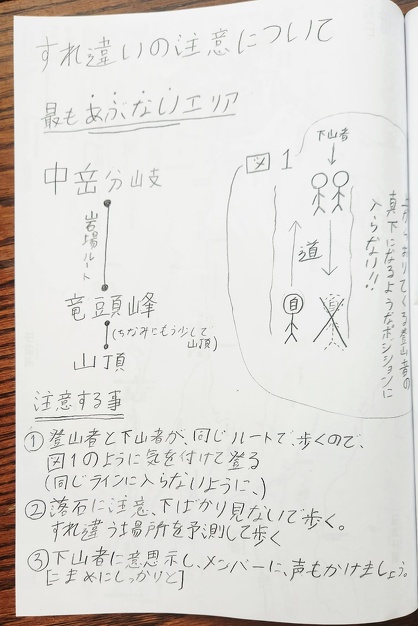 すれ違いの注意について
最もあぶないエリア
中岳分岐
岩場ルート
竜頭峰
(ちなみにもう少しで
山頂)
山頂
図1
下山者
道
自
おりてくる登山者の
真下になるようなポジションに
入らない!!
注意する事
①登山者と下山者が、同じルートで、歩くので、
図1のように気を付けて登る
(同じラインに入らないように、)
②落石に注意、下ばかり見ないで歩く。
すれ違う場所を予測して歩く
③下山者に意思示し、メンバーに、声もかけましょう。
[こまめにしっかりと]